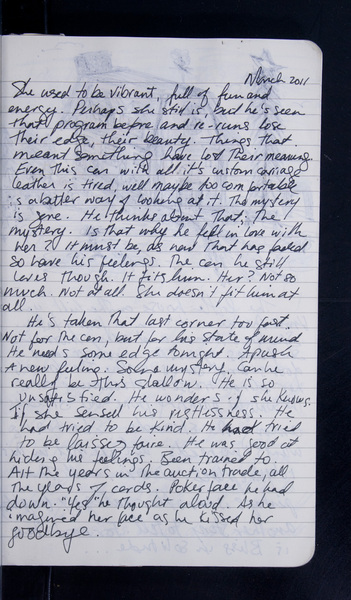 March 2011
She used to be vibrant, full of fun and
energy. Perhaps she still is, but he's seen
that program before and re-runs lose
their edge, their beauty. Things that
meant something have lost their meaning.
Even this car with all it's custom carriage
leather is tired, well maybe too comfortable
is a better way of looking at it. The mystery
is gone. He thinks about that, the
mystery. Is that why he fell in love with
her? It must be, as now that has faded
so have his feelings. The car he still
loves though. It fits him. Her? Not so
much. Not at all. She doesn't fit him at
all.
He's taken that last corner too fast.
Not for the car, but for his state of mind
He needs some edge tonight. A push
A new feeling. Some mystery. Can he
really be this shallow. He is so
unsatisfied. He wonders if she knows.
If she senses his restlessness. He
had tried to be kind. He had tried
to be laissez faire. He was good at
hiding his feelings. Been trained to.
All the years in the auction trade, all
the years of cards. Poker face he had
down. "Yes" he thought aloud. As he
imagined her face as he kissed her
goodbye.